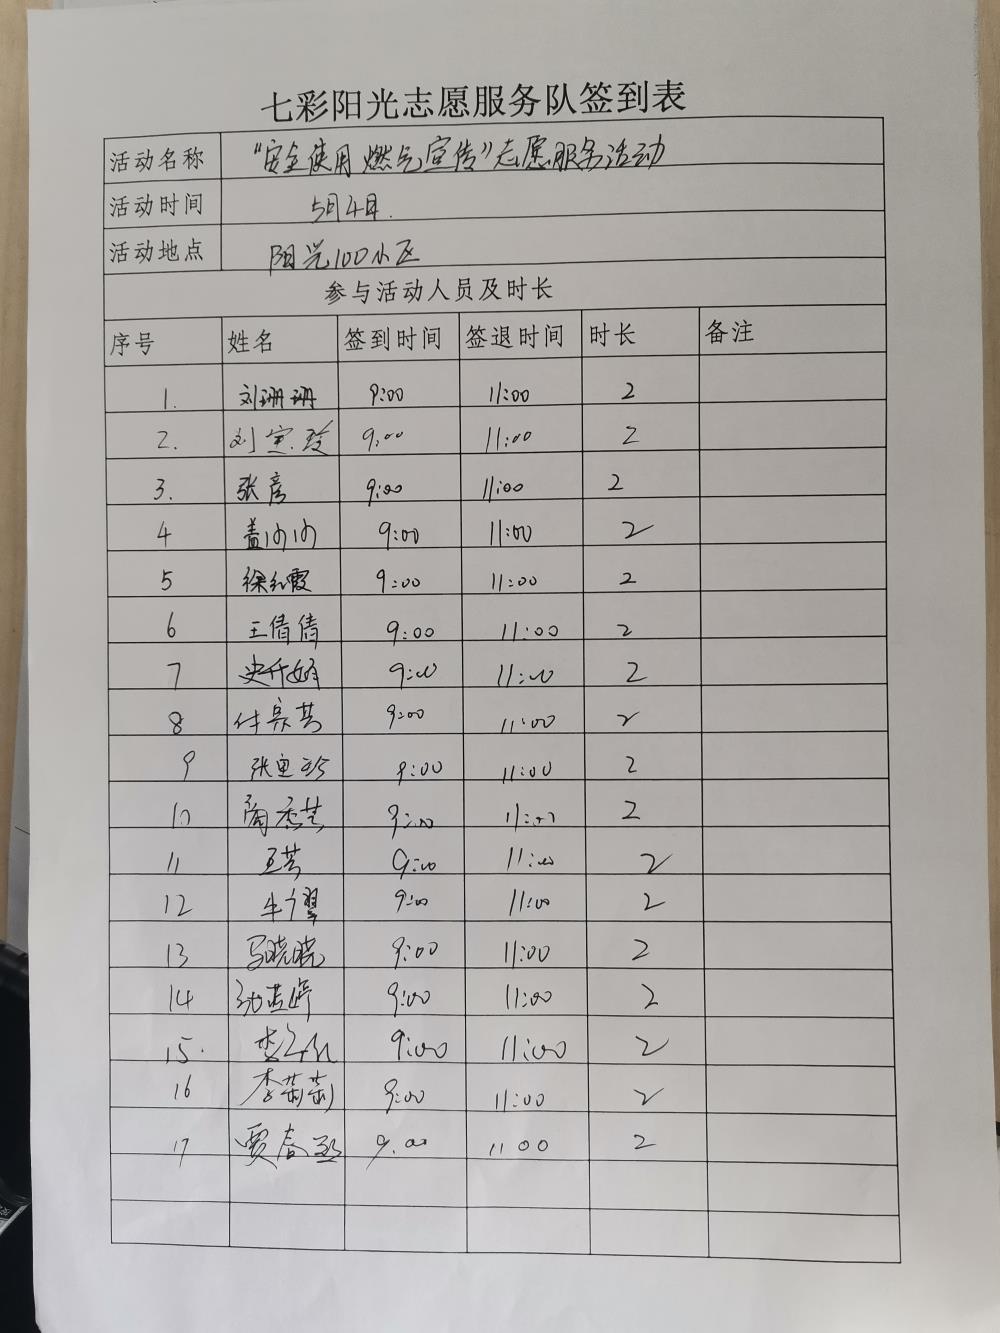 七彩阳光志愿服务队签到表
活动名称 “安全使用燃气宣传”志愿服务活动
活动时间 5月4日.
活动地点 阳光100小区
参与活动人员及时长
序号 姓名 签到时间 签退时间 时长 备注
1. 刘珊珊 9:00 11:00 2
2. 刘 9:00 11:00 2
3. 张彦 9:00 11:00 2
4 盖 9:00 11:00 2
5 徐红霞 9:00 11:00 2
6 王倩倩 9:00 11:00 2
7 史 9:00 11:00 2
8 付 9:00 11:00 2
9 张 9:00 11:00 2
10 陶秀芸 9:00 11:00 2
11 9:00 11:00 2
12 牛 9:00 11:00 2
13 马晓晓 9:00 11:00 2
14 9:00 11:00 2
15. 李 9:00 11:00 2
16 李莉莉 9:00 11:00 2
17 贾春 9:00 11:00 2